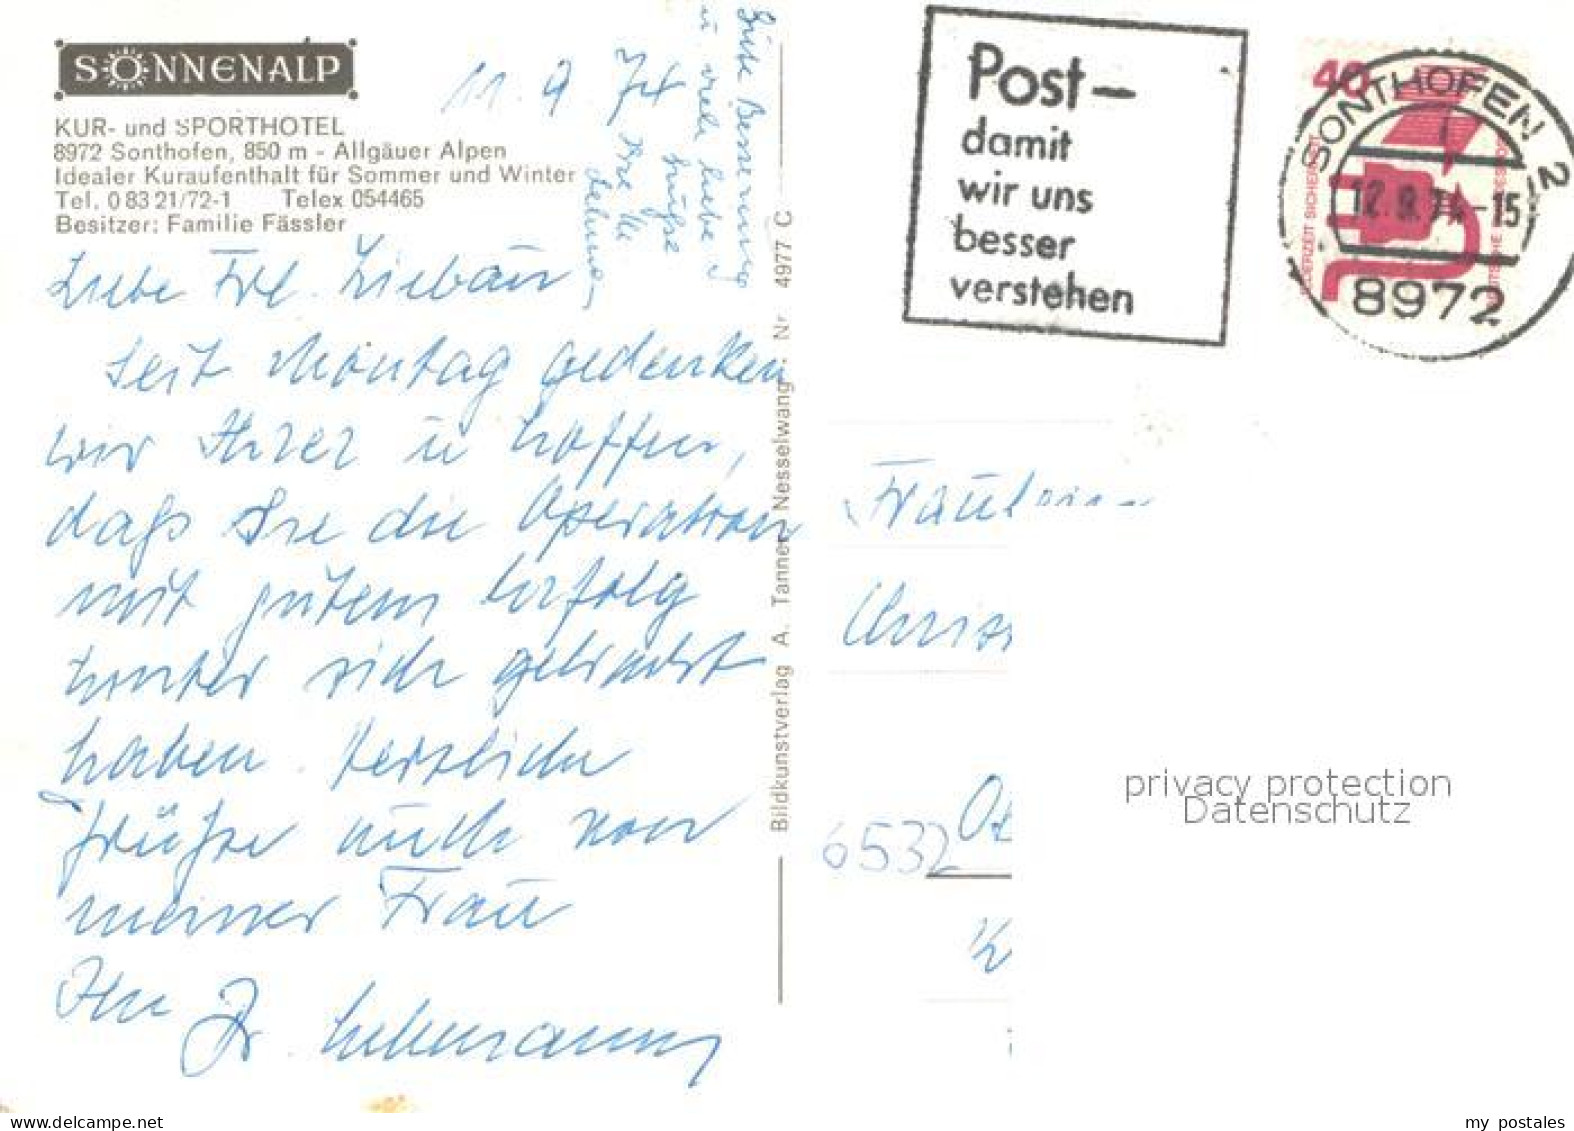 SONNENALP
KUR- und SPORTHOTEL
8972 Sonthofen, 850 m - Allgäuer Alpen
Idealer Kuraufenthalt für Sommer und Winter
Tel. 0 83 21/72-1 Telex 054465
Besitzer: Familie Fässler
11. 9. 74
Liebe Frl. Liebau
Seit Montag gedenken
wir Ihrer u hoffen,
daß Sie die Operation
mit gutem Erfolg
hinter sich gebracht
haben. Herzliche
Grüße auch von
meiner Frau
Ihr Dr Lehmann
Gute Besserung
u viele liebe
Grüße
Ihre
Lehmann
Bildkunstverlag A. Tanner Nesselwang Nr 4977 C
Post-
damit
wir uns
besser
verstehen
40
JEDERZEIT SICHERHEIT
DEUTSCHE BUNDESPOST
SONTHOFEN 2
12.9.74-15
8972
Fräulein
Chris
6532 O
K
privacy protection
Datenschutz
www.delcampe.net
my postales